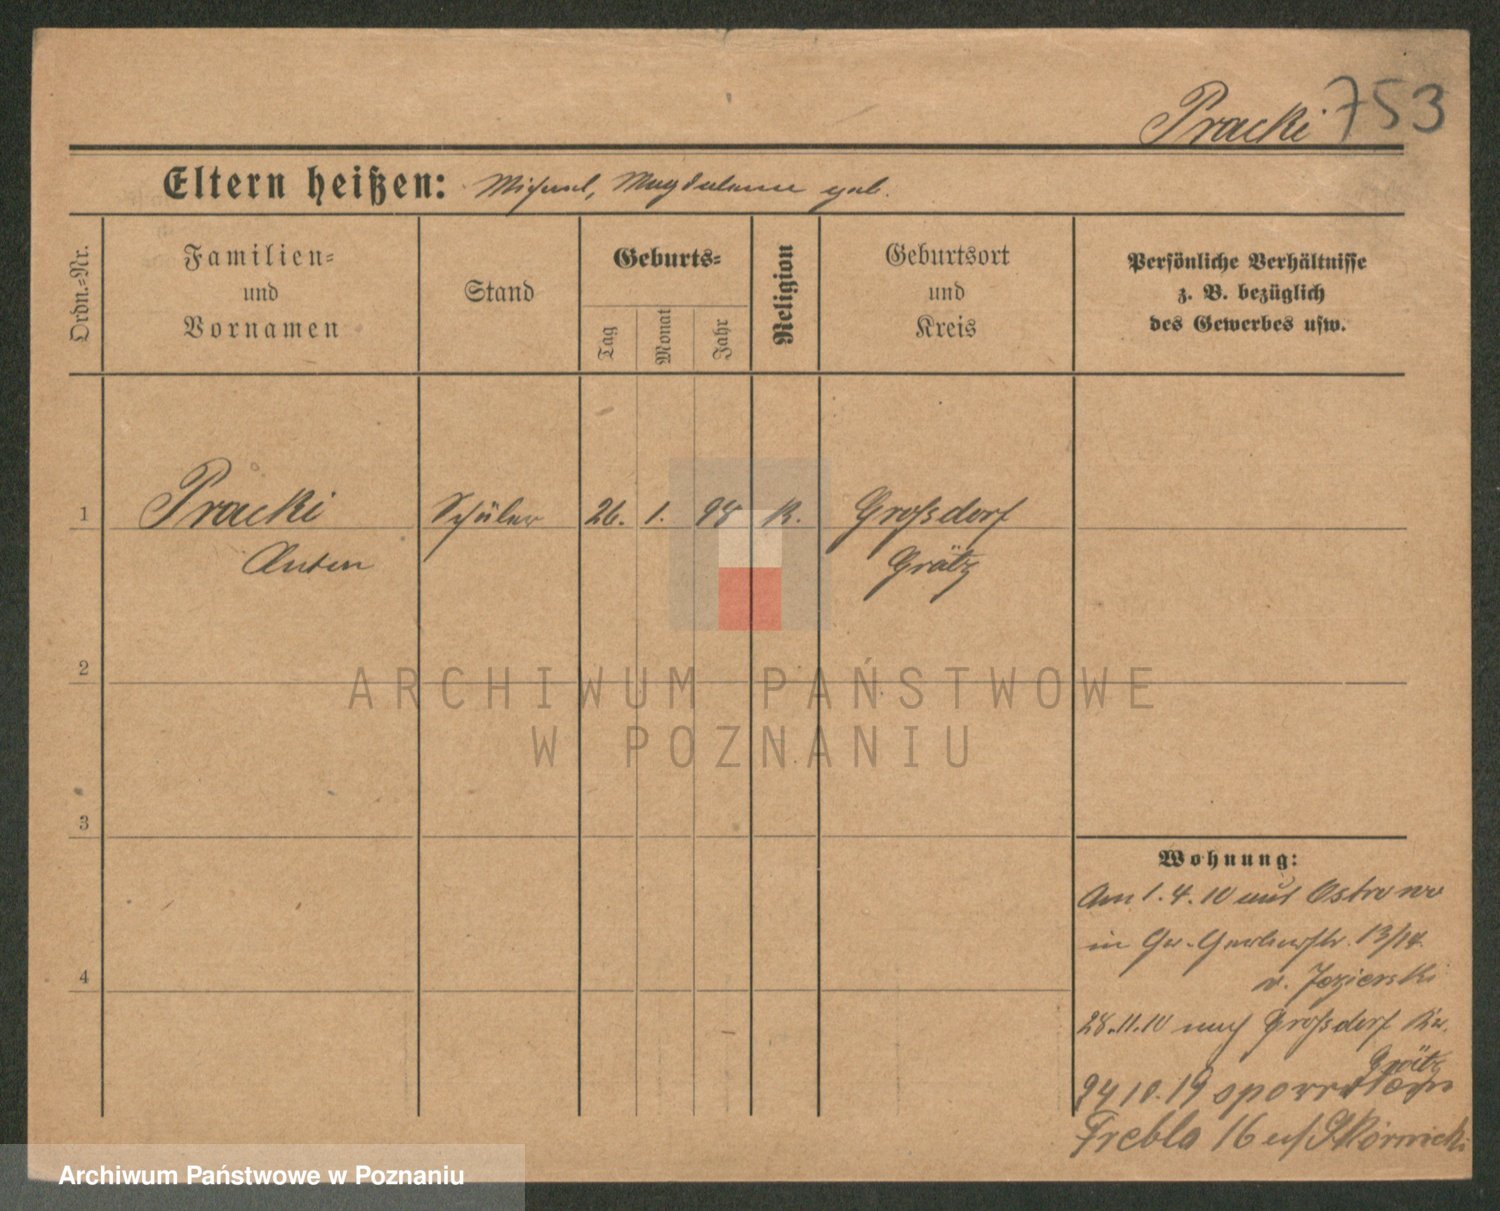 Pracki 753
Eltern heißen: Michael, Magdalena geb.
Ordn.-Nr.
Familien-
und
Vornamen
Stand
Geburts-
Tag
Monat
Jahr
Religion
Geburtsort
und
Kreis
Persönliche Verhältnisse
z. B. bezüglich
des Gewerbes usw.
1 Pracki Schüler 26. 1. 98 K. Großdorf
Anton Grätz
2
ARCHIWUM PAŃSTWOWE
W POZNANIU
3
Wohnung:
Am 1.4.10 aus Ostrowo
in Gr. Gerberstr. 13/14
b. Jezierski
4
28.11.10 nach Großdorf Kr.
Grätz
24 10.19
Frebla 16 u/Skórnicki
Archiwum Państwowe w Poznaniu